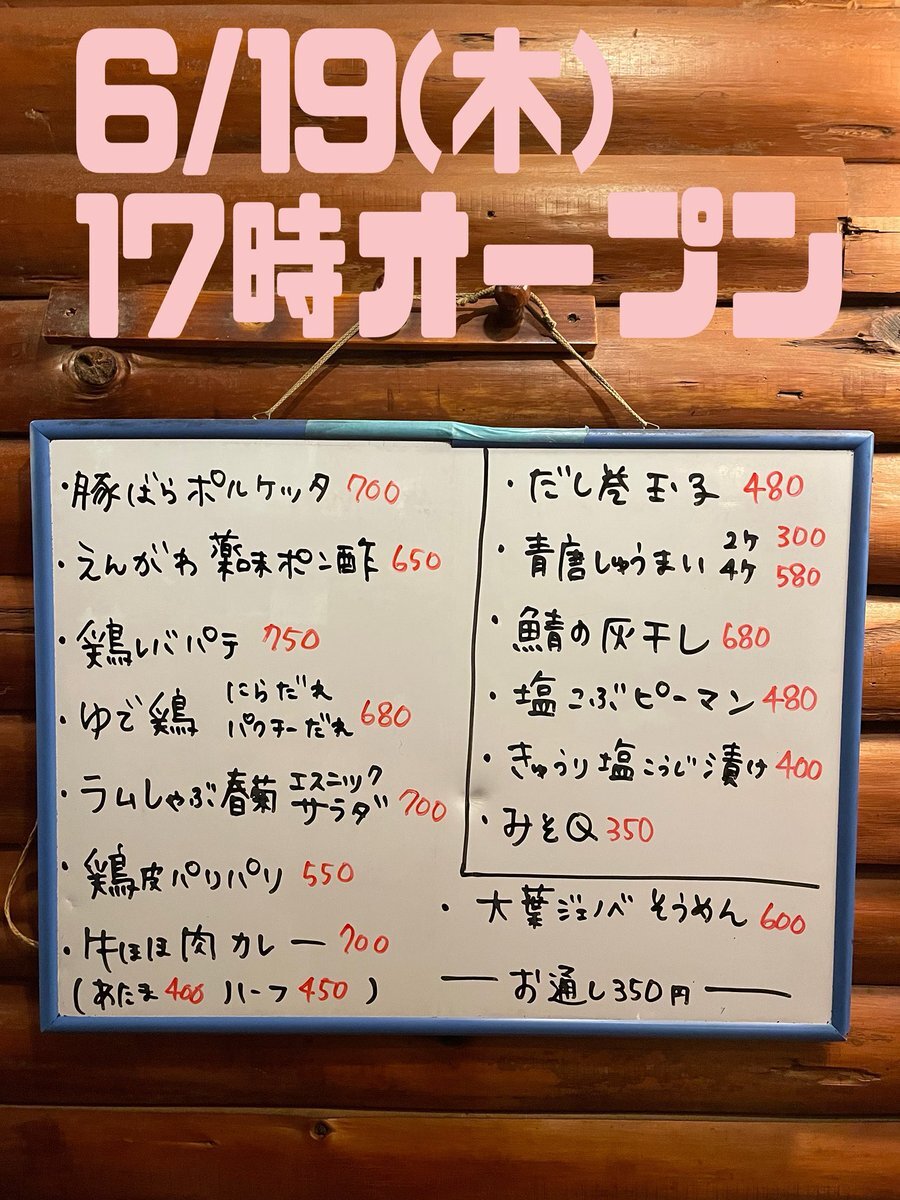 6/19(木)
17時オープン
・豚ばらポルケッタ 700
・えんがわ 薬味ポン酢 650
・鶏レバパテ 750
・ゆで鶏 にらだれ パクチーだれ 680
・ラムしゃぶ春菊 エスニックサラダ 700
・鶏皮パリパリ 550
・牛ほほ肉カレー 700
(あたま400 ハーフ450)
・だし巻玉子 480
・青唐しゅうまい 2ケ 300
4ケ 580
・鯖の灰干し 680
・塩こぶピーマン 480
・きゅうり塩こうじ漬け 400
・みそQ 350
・大葉ジェノベそうめん 600
― お通し350円 ―